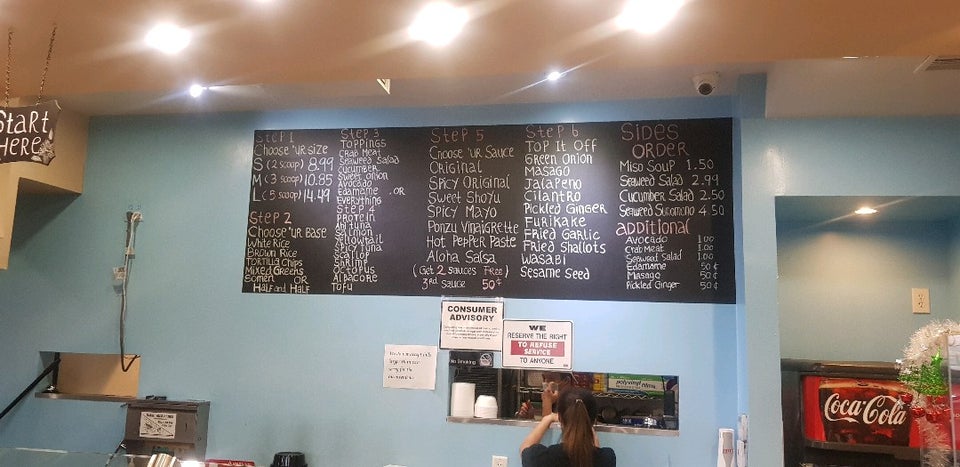 START
HERE
Step 1
Choose 'ur size
S (2 scoop) 8.99
M (3 scoop) 10.95
L (5 scoop) 14.49
Step 2
Choose 'ur Base
White Rice
Brown Rice
Tortilla Chips
Mixed Greens
Somen OR
Half and Half
Step 3
Toppings
Crab Meat
Seaweed Salad
Cucumber
Sweet Onion
Avocado
Edamame OR
Everything
Step 4
Protein
Ahi Tuna
Salmon
Yellowtail
Spicy Tuna
Scallop
Shrimp
Octopus
Albacore
Tofu
Step 5
Choose 'ur Sauce
Original
Spicy Original
Sweet Shoyu
Spicy Mayo
Ponzu Vinaigrette
Hot Pepper Paste
Aloha Salsa
(Get 2 sauces Free)
3rd Sauce 50¢
Step 6
Top It Off
Green Onion
Masago
Jalapeno
Cilantro
Pickled Ginger
Furikake
Fried Garlic
Fried Shallots
Wasabi
Sesame Seed
Sides
Order
Miso Soup 1.50
Seaweed Salad 2.99
Cucumber Salad 2.50
Seaweed Sunomono 4.50
Additional
Avocado 1.00
Crab Meat 1.00
Seaweed Salad 1.00
Edamame 50¢
Masago 50¢
Pickled Ginger 50¢
CONSUMER
ADVISORY
WE
RESERVE THE RIGHT
TO REFUSE
SERVICE
TO ANYONE
No Smoking
polyvinyl films
Coca-Cola